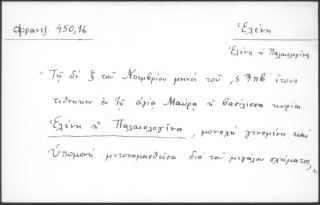 Φραντζ. 450,16
Ἑλένη
Ἑλένη ἡ Παλαιολογῖνα
"Τῇ δὲ ξ τοῦ Νοεμβρίου μηνὸς τοῦ ,ϛϡπβ ἔτους
τέθνηκεν ἐν τῇ ἁγίᾳ Μαύρᾳ ἡ βασίλισσα κυρία
Ἑλένη ἡ Παλαιολογῖνα, μοναχὴ γενομένη καὶ
Ὑπομονὴ μετονομασθεῖσα διὰ τοῦ μεγάλου σχήματος,,